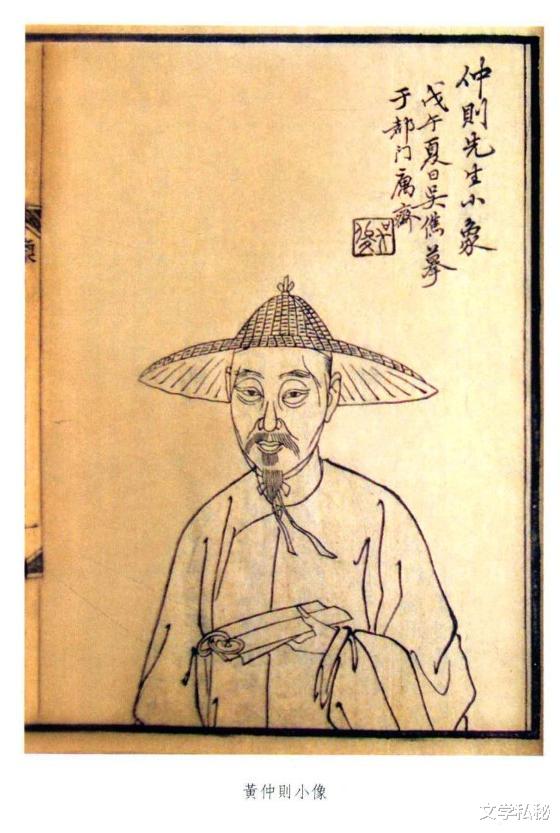 仲則先生小象
戊午夏日吴儁摹
于都门寓齋
黃仲則小像
文学私秘